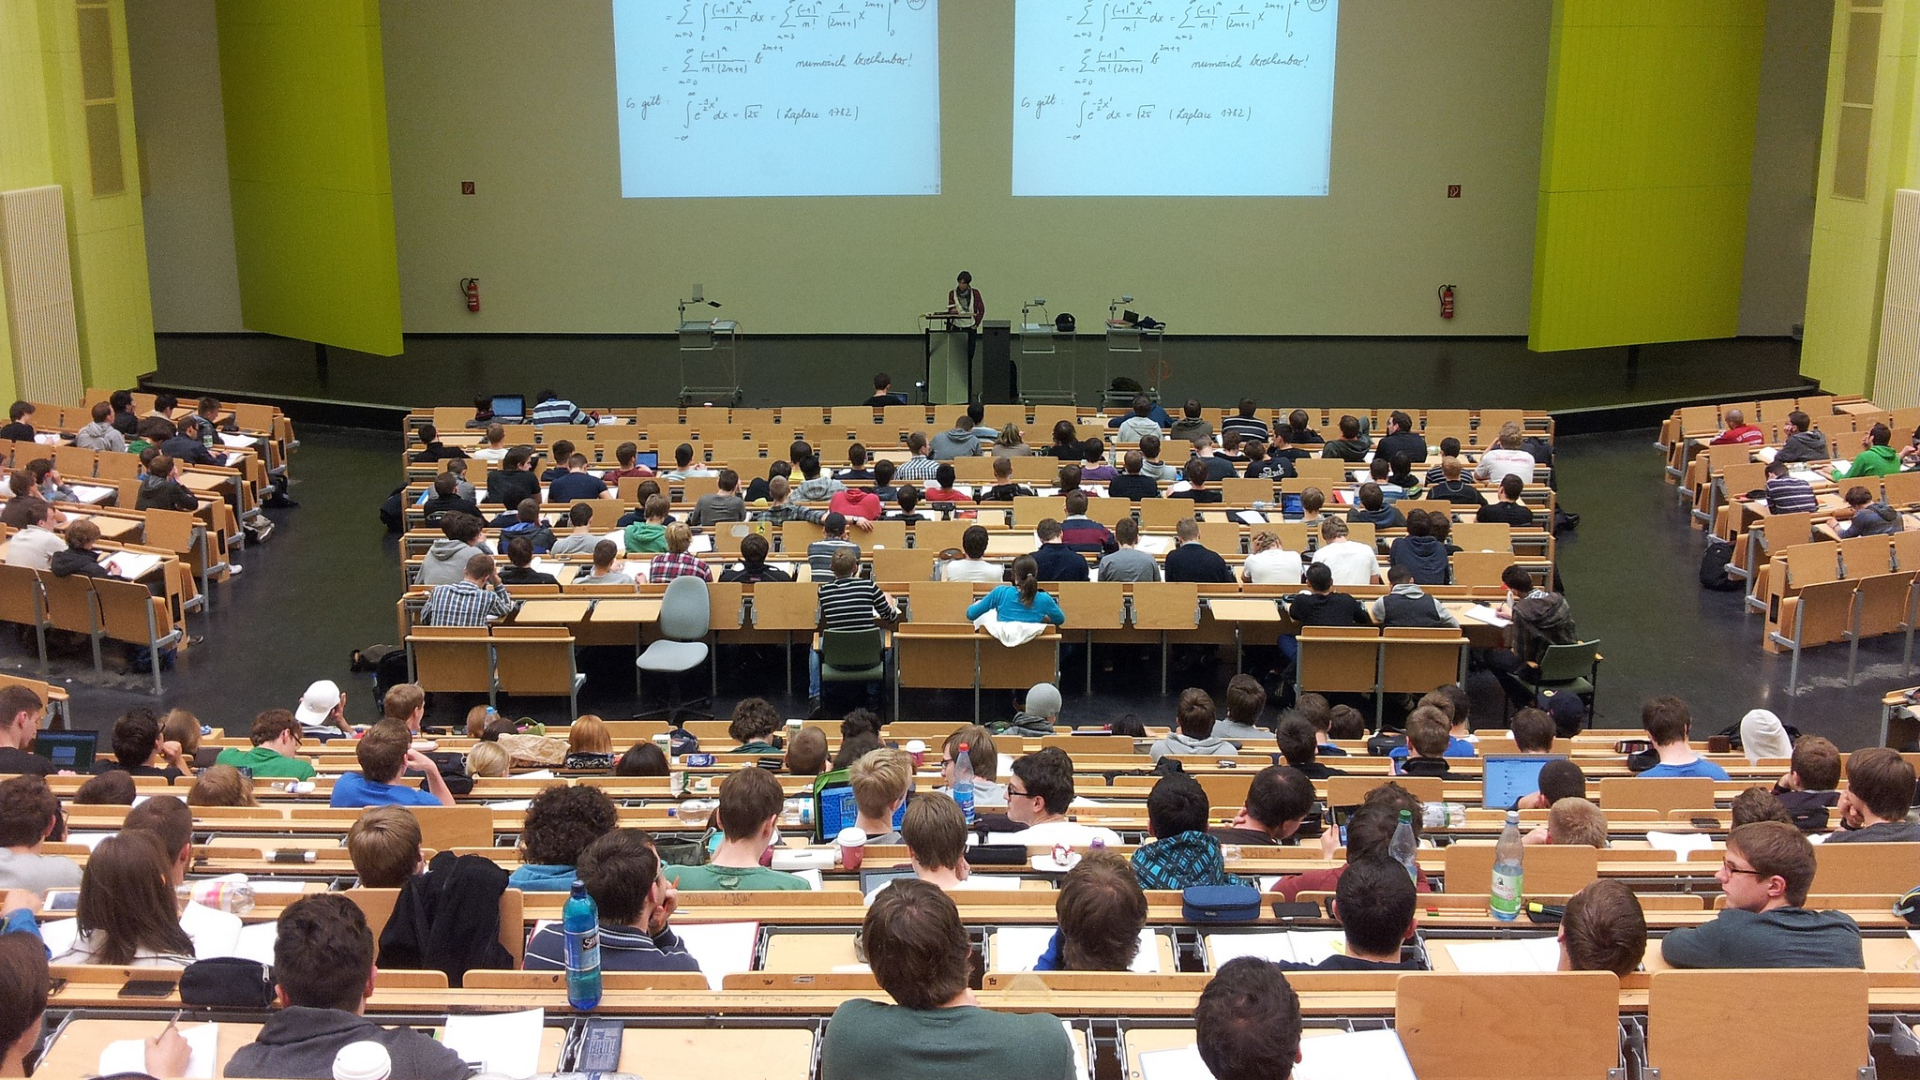 = ∑_{n=0}^{∞} ∫_0 (-1)^n x^{2n} / n! dx = ∑_{n=0} (-1)^n / n! · 1/(2n+1) x^{2n+1} |_0
= ∑_{n=0}^{∞} (-1)^n / n!(2n+1) · b^{2n+1} numerisch berechenbar!
Es gilt: ∫_{-∞}^{∞} e^{-½x²} dx = √2π (Laplace 1782)
= ∑_{n=0}^{∞} ∫_0 (-1)^n x^{2n} / n! dx = ∑_{n=0} (-1)^n / n! · 1/(2n+1) x^{2n+1} |_0
= ∑_{n=0}^{∞} (-1)^n / n!(2n+1) · b^{2n+1} numerisch berechenbar!
Es gilt: ∫_{-∞}^{∞} e^{-½x²} dx = √2π (Laplace 1782)